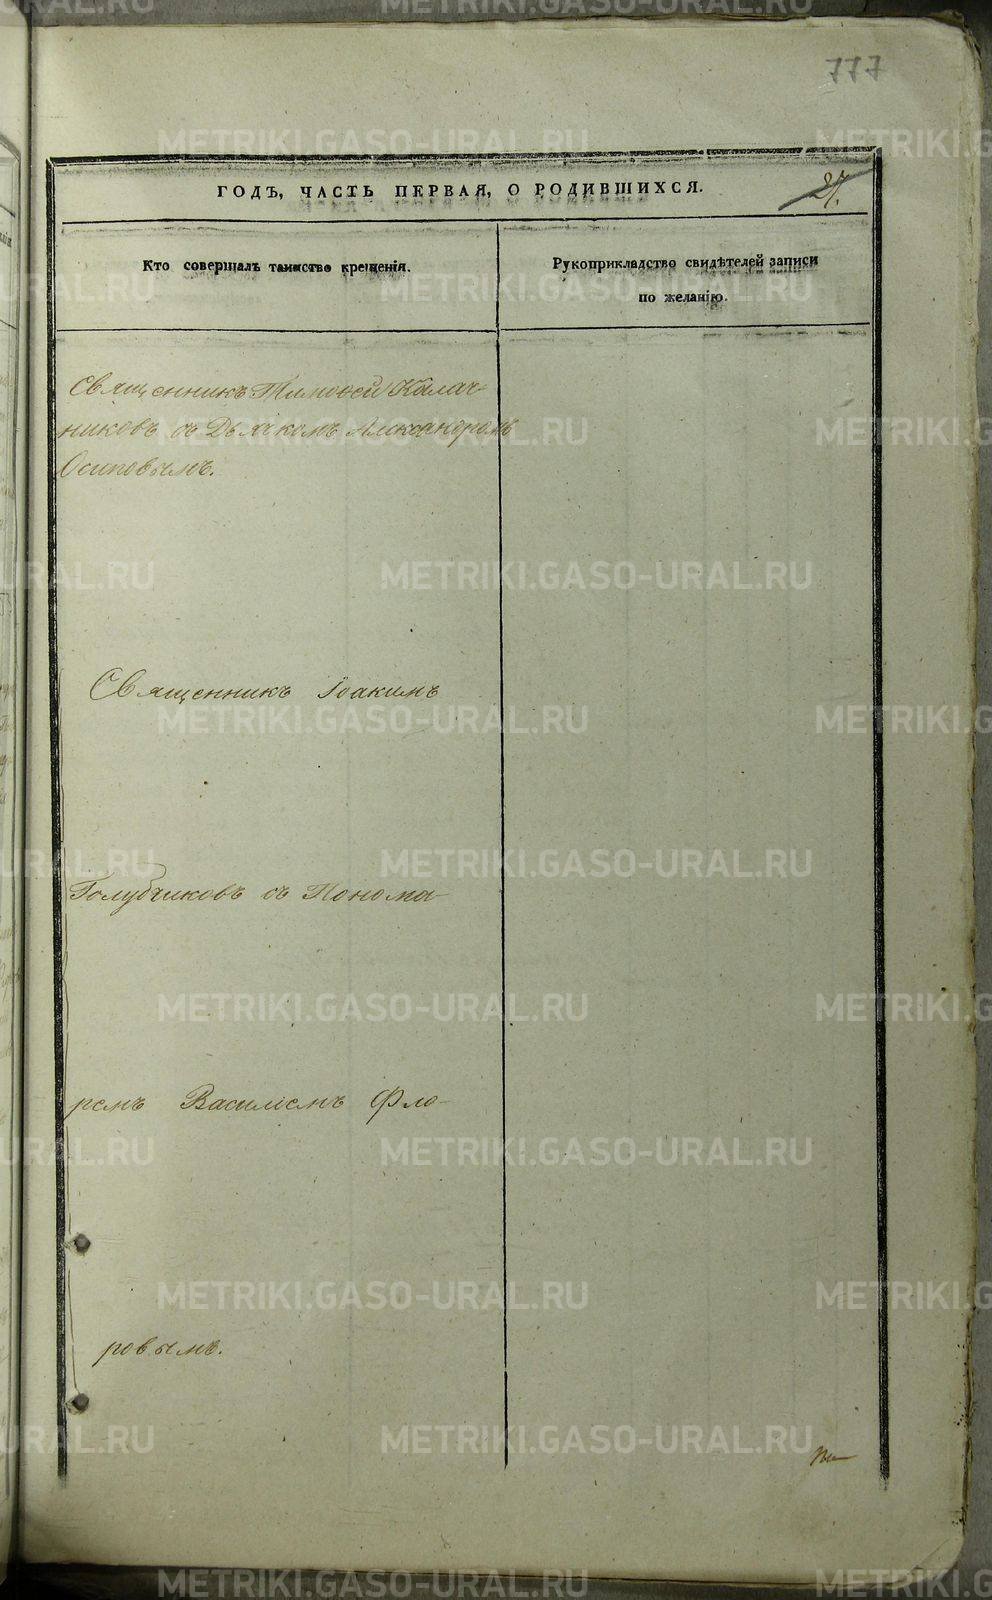 777
ГОДЪ, ЧАСТЬ ПЕРВАЯ, О РОДИВШИХСЯ.
27.
Кто совершалъ таинство крещенія.
Рукоприкладство свидѣтелей записи
по желанію.
Священникъ Тимофей Калач-
никовъ съ Дьячкомъ Александромъ
Осиповымъ.
Священникъ Іоакимъ
Голубчиковъ съ Понома-
ремъ Василіемъ Фло-
ровымъ.
METRIKI.GASO-URAL.RU